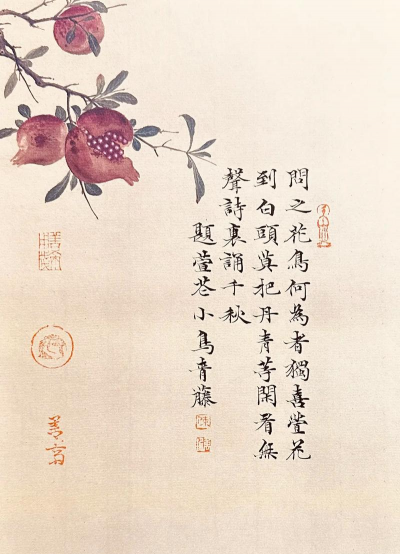 問之花鳥何為者獨喜萱花
到白頭莫把丹青等閑看無
聲詩裏誦千秋
題萱花小鳥青藤